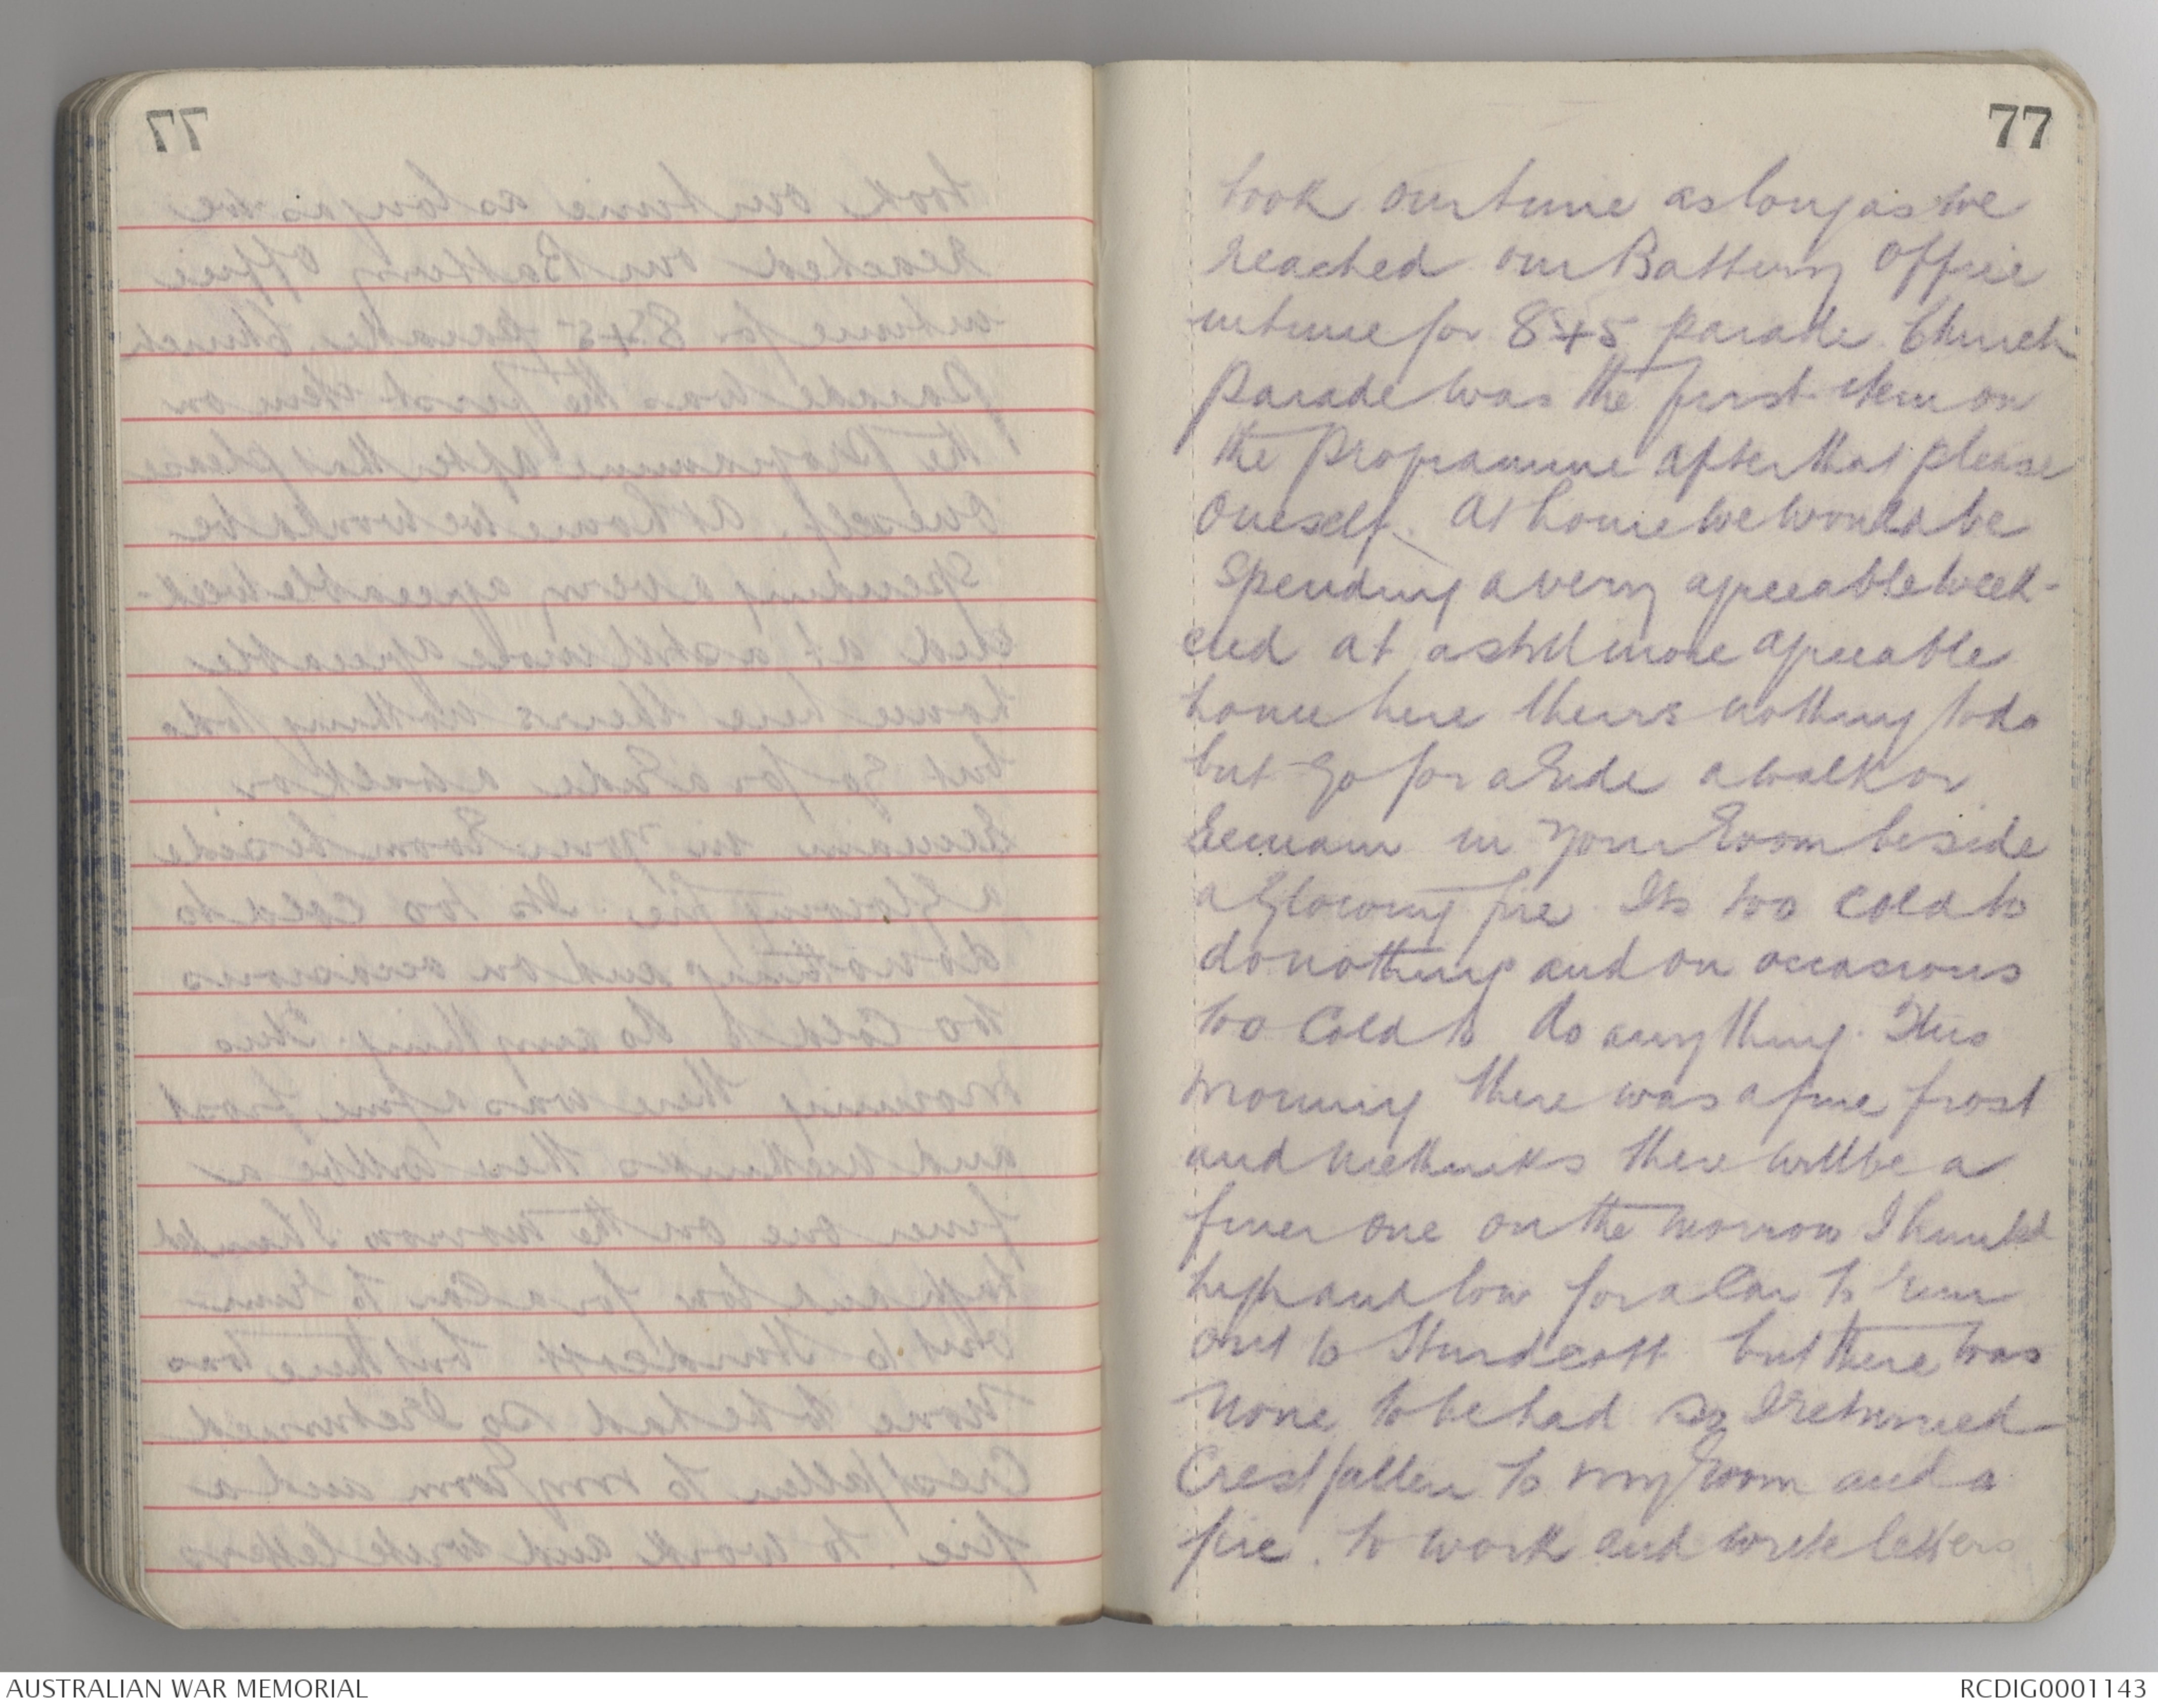 77
took our time as long as we
reached our Battery Office
in time for 8.45 parade. Church
Parade was the first item on
the Programme after that please
oneself. At home we would be
spending a very agreeable week-
end at a still more agreeable
home here theirs nothing to do
but go for a ride a walk or
remain in your room beside
a glowing fire. Its too cold to
do nothing and on occasions
too cold to do anything. This
morning there was a fine frost
and methinks there will be a
finer one on the morrow I hunted
high and low for a Car to run
out to Hurdcott but there was
none to be had so I returned
Crestfallen to my room and a
fire. to work and write letters
AUSTRALIAN WAR MEMORIAL
RCDIG0001143